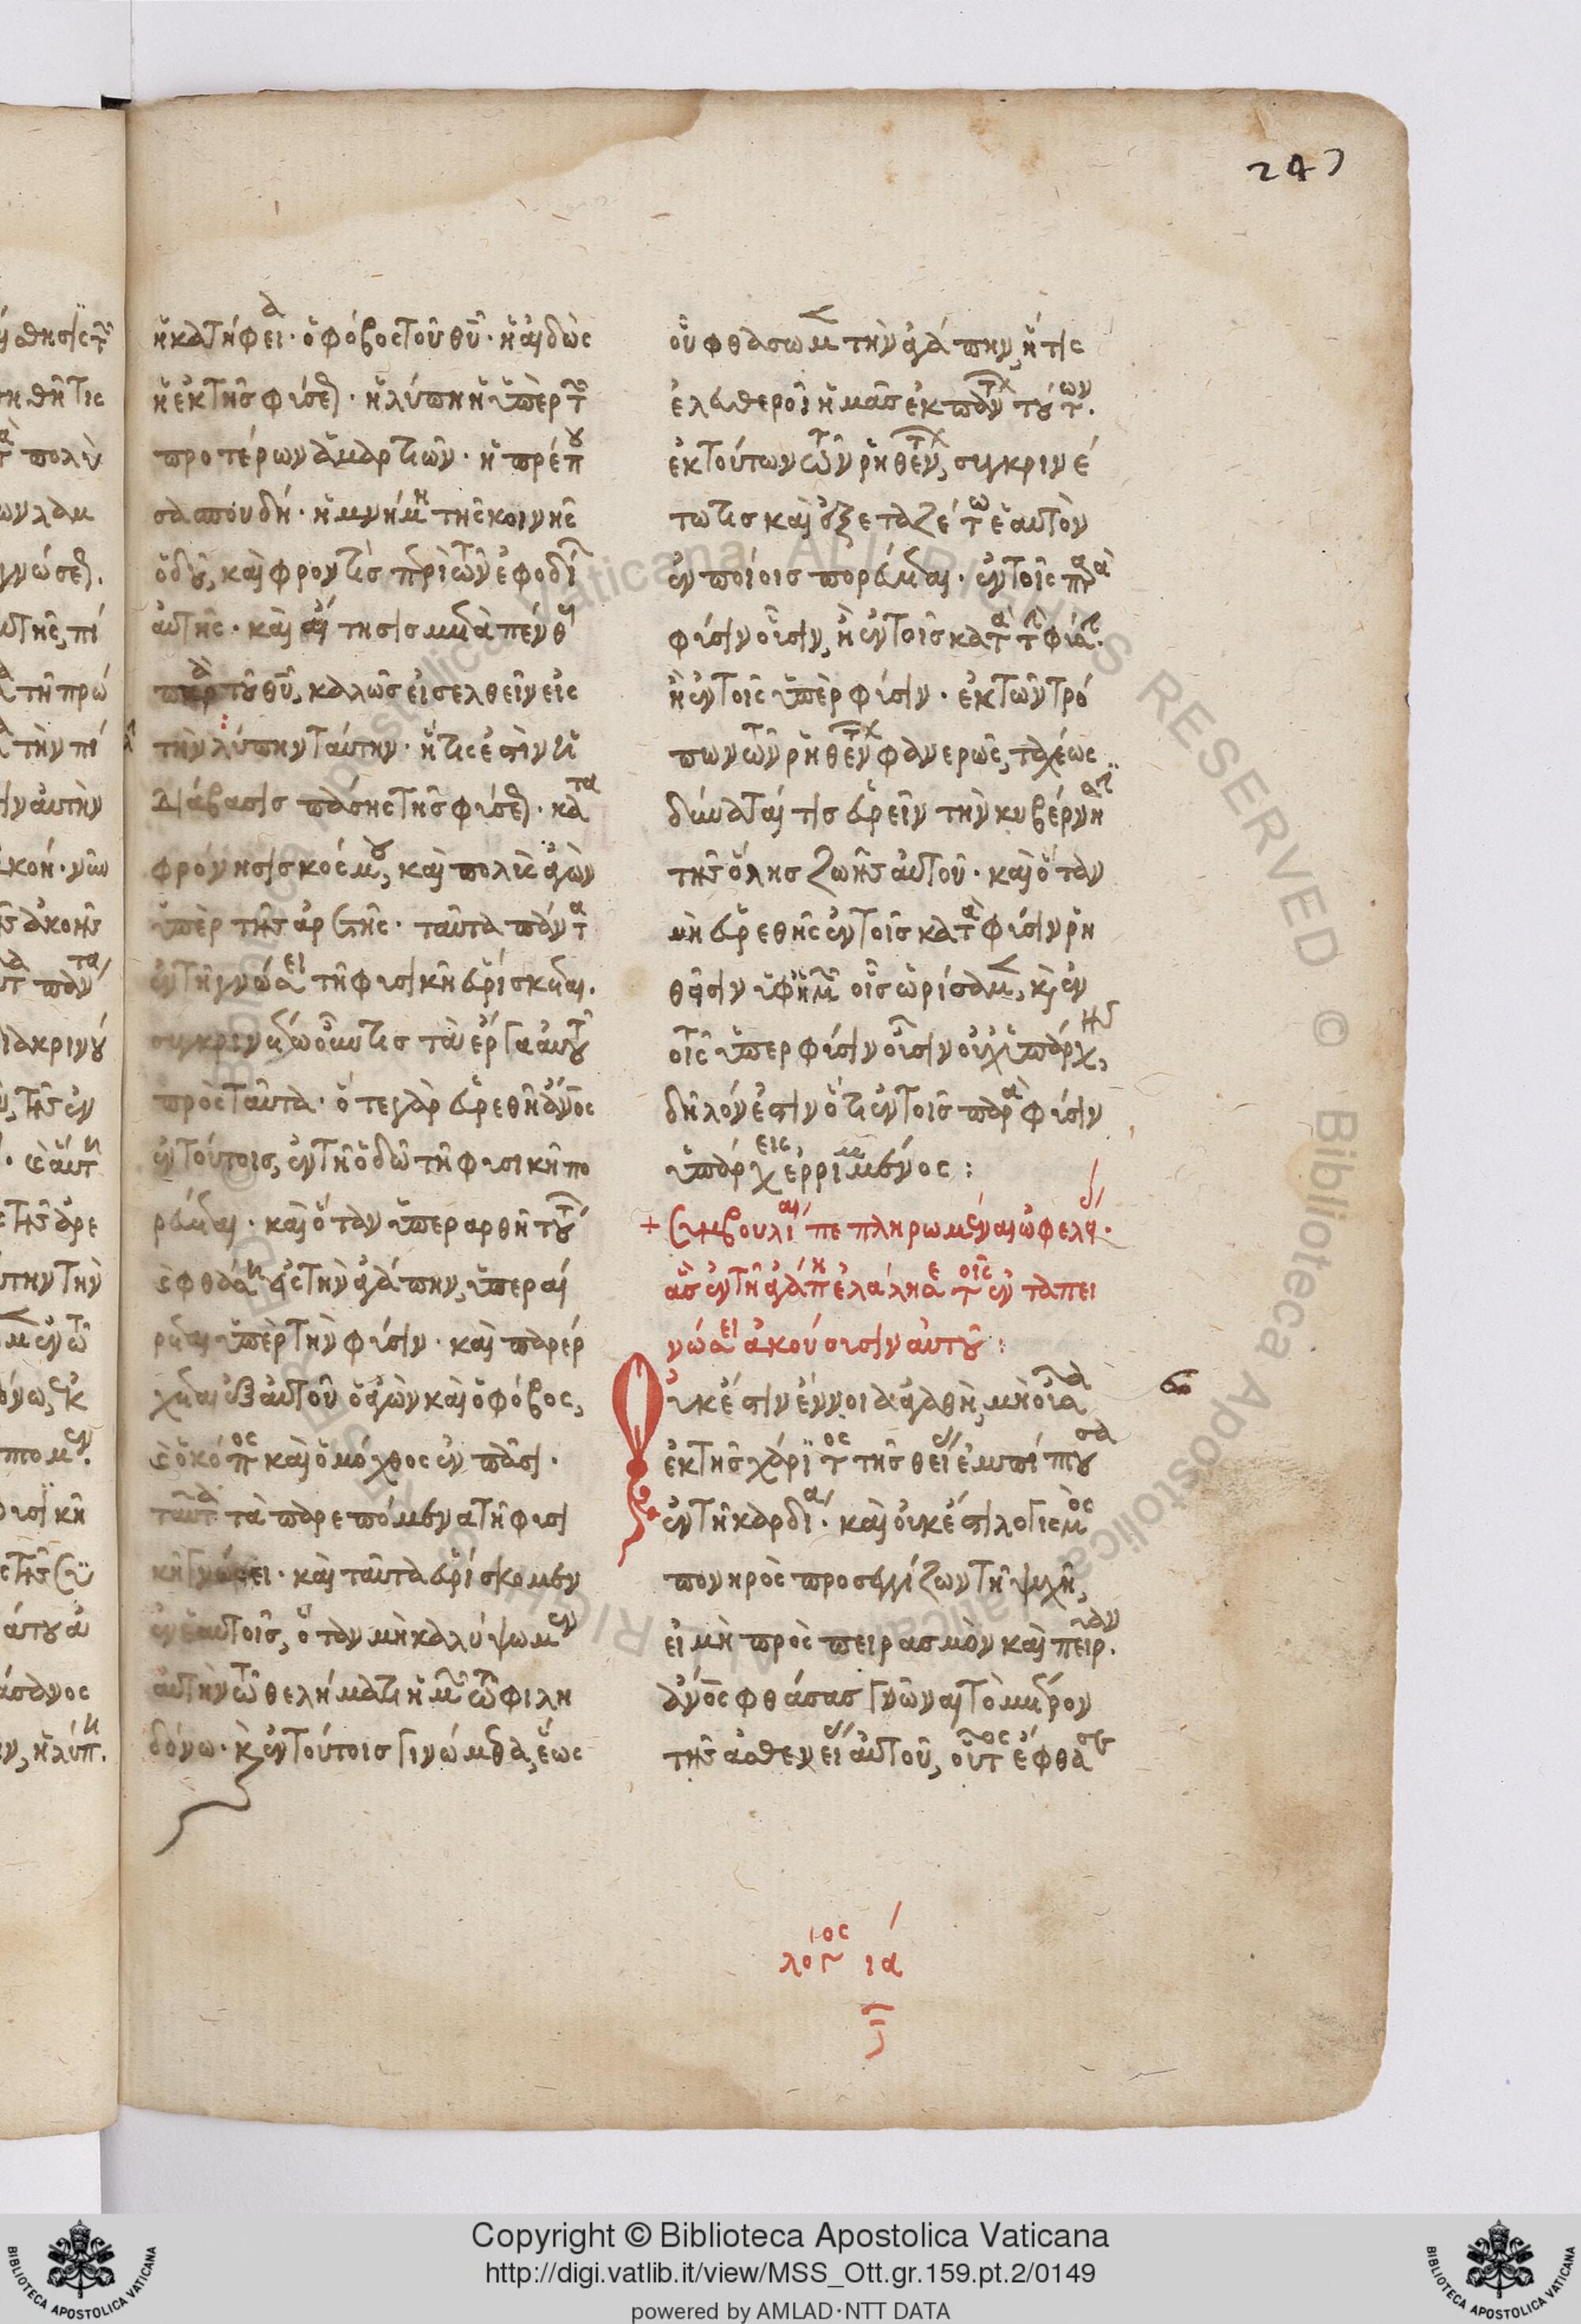 247
ἡ κατήφεια· ὁ φόβος τοῦ θῦ· ἡ αἰδὼς
ἡ ἐκ τῆς φύσεως· ἡ λύπη ἡ ὑπὲρ τῶν
προτέρων ἁμαρτιῶν· ἡ πρέπου
σα σπουδή· ἡ μνήμη τῆς κοινῆς
ὁδοῦ, καὶ φροντὶς περὶ τῶν ἐφοδίων
αὐτῆς· καὶ αἴτησις μετὰ πένθους
παρὰ τοῦ θῦ, καλῶς εἰσελθεῖν εἰς
τὴν λύπην ταύτην· ἥτις ἐστὶν ἡ
διάβασις πάσης τῆς φύσεως· κατα
φρόνησις κόσμου, καὶ πολὺς ἀγὼν
ὑπὲρ τῆς ἀρετῆς· ταῦτα πάντα
ἐν τῇ γνώσει τῇ φυσικῇ εὑρίσκεται·
συγκρινέτω οὖν τις τὰ ἔργα αὐτοῦ
πρὸς ταῦτα· ὅτε γὰρ εὑρεθῇ ἄνος
ἐν τούτοις, ἐν τῇ ὁδῷ τῇ φυσικῇ πο
ρεύεται· καὶ ὅταν ὑπεραρθῇ τούτων
καὶ φθάσῃ εἰς τὴν ἀγάπην, ὑπεραί
ρεται ὑπὲρ τὴν φύσιν· καὶ παρέρ
χεται ἐξ αὐτοῦ ὁ ἀγὼν καὶ ὁ φόβος,
καὶ ὁ κόπος καὶ ὁ μόχθος ἐν πᾶσι·
ταῦτα τὰ παρεπόμενα τῇ φυσι
κῇ γνώσει· καὶ ταῦτα εὑρίσκομεν
ἐν ἑαυτοῖς, ὅταν μὴ καλύψωμεν
αὐτὴν τῷ θελήματι ἡμῶν τῷ φιλη
δόνῳ· καὶ ἐν τούτοις γινώμεθα, ἕως
οὗ φθάσωμεν τὴν ἀγάπην, ἥτις
ἐλευθεροῖ ἡμᾶς ἐκ πάντων τούτων·
ἐκ τούτων τῶν ῥηθέντων, συγκρινέ
τω τις καὶ ἐξεταζέτω ἑαυτὸν
ἐν ποίοις πορεύεται· ἐν τοῖς παρὰ
φύσιν οὖσιν, ἢ ἐν τοῖς κατὰ τὴν φύσιν·
ἢ ἐν τοῖς ὑπὲρ φύσιν· ἐκ τῶν τρό
πων τῶν ῥηθέντων φανερῶς, ταχέως
δύναταί τις εὑρεῖν τὴν κυβέρνησιν
τῆς ὅλης ζωῆς αὐτοῦ· καὶ ὅταν
μὴ εὑρεθῇς ἐν τοῖς κατὰ φύσιν ῥη
θεῖσιν ὑφ' ἡμῶν οἷς ὡρίσαμεν, καὶ ἐν
τοῖς ὑπερφύσιν οὖσιν οὐχ ὑπάρχῃς,
δῆλόν ἐστιν ὅτι ἐν τοῖς παρὰ φύσιν
ὑπάρχεις ἐρριμμένος:
+ Συμβουλίαι πεπληρωμέναι ὠφελείας·
ἃς ἐν τῇ ἀγάπῃ ἐλάλησε τοῖς ἐν ταπει
νώσει ἀκούουσιν αὐτοῦ:
Οὐκ ἔστιν ἔννοια ἀγαθή, μὴ οὖσα
ἐκ τῆς χάριτος τῆς θείας ἐμπίπτουσα
ἐν τῇ καρδίᾳ· καὶ οὐκ ἔστι λογισμὸς
πονηρὸς προσεγγίζων τῇ ψυχῇ,
εἰ μὴ πρὸς πειρασμὸν καὶ πεῖραν·
ἄνος φθάσας γνῶναι τὸ μέτρον
τῆς ἀσθενείας αὐτοῦ, οὗτος ἔφθασε
λόγος ια
Copyright © Biblioteca Apostolica Vaticana
http://digi.vatlib.it/view/MSS_Ott.gr.159.pt.2/0149
powered by AMLAD·NTT DATA